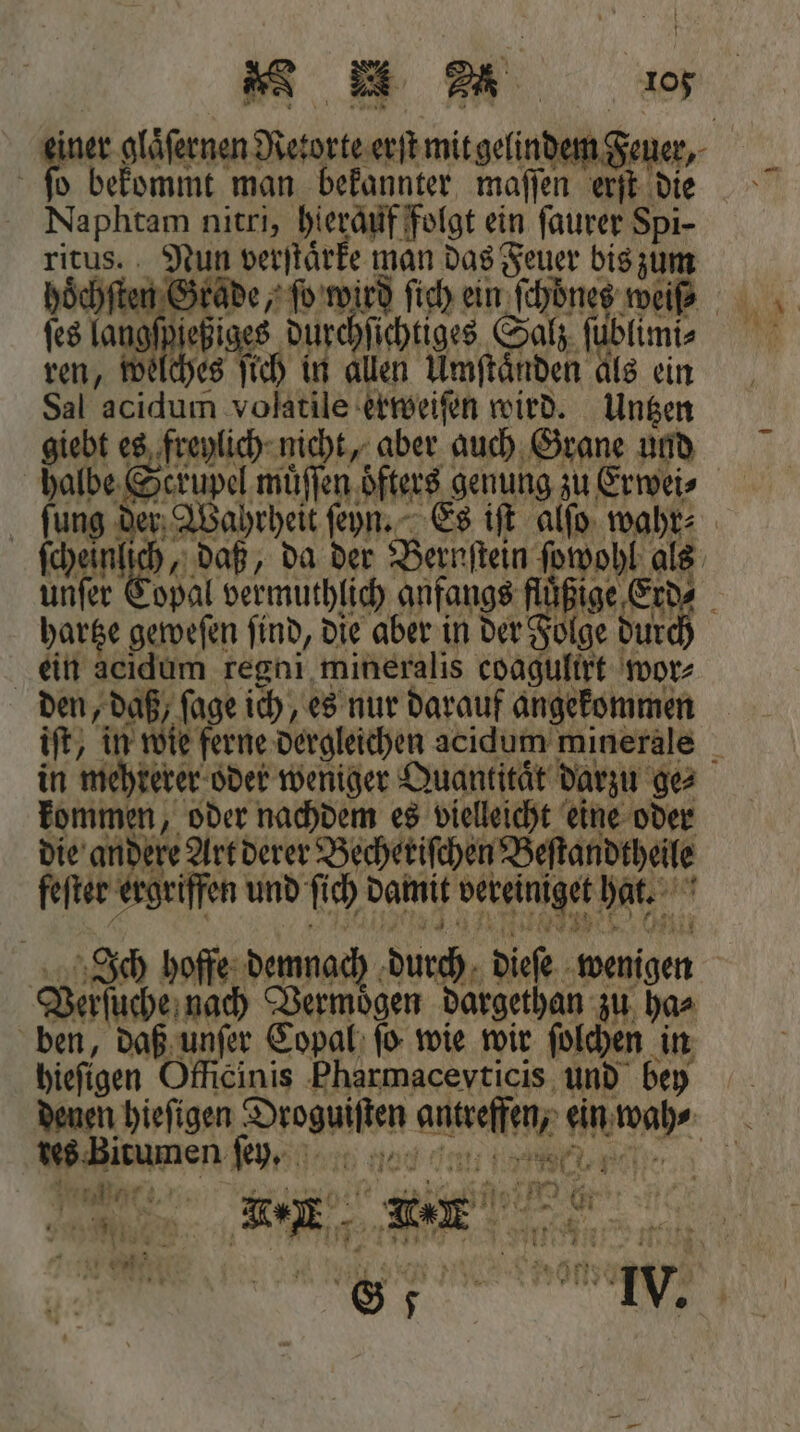 105
einer gläſernen Retorte erſt mit gelindem Feuer,
ſo bekommt man bekannter maſſen erſt die
Naphtam nitri, hierauf folgt ein ſaurer Spi-
ritus. Nun verſtärke man das Feuer bis zum
höchſten Grade, ſo wird ſich ein ſchönes weiſ-
ſes langſpießiges durchſichtiges Salz ſublimi-
ren, welches ſich in allen Umſtänden als ein
Sal acidum volatile erweiſen wird. Untzen
giebt es freylich nicht, aber auch Grane und
halbe Scrupel müſſen öfters genung zu Erwei-
ſung der Wahrheit ſeyn. Es iſt alſo wahr-
ſcheinlich, daß, da der Bernſtein ſowohl als
unſer Copal vermuthlich anfangs flüßige Erd-
hartze geweſen ſind, die aber in der Folge durch
ein acidum regni mineralis coagulirt wor-
den, daß, ſage ich, es nur darauf angekommen
iſt, in wie ferne dergleichen acidum minerale
in mehrerer oder weniger Quantität darzu ge-
kommen, oder nachdem es vielleicht eine oder
die andere Art derer Becheriſchen Beſtandtheile
feſter ergriffen und ſich damit vereiniget hat.
Ich hoffe demnach durch dieſe wenigen
Verſuche nach Vermögen dargethan zu ha-
ben, daß unſer Copal ſo wie wir ſolchen in
hieſigen Officinis Pharmacevticis und bey
denen hieſigen Droguiſten antreffen, ein wah-
res Bitumen ſey.
G 5 IV.